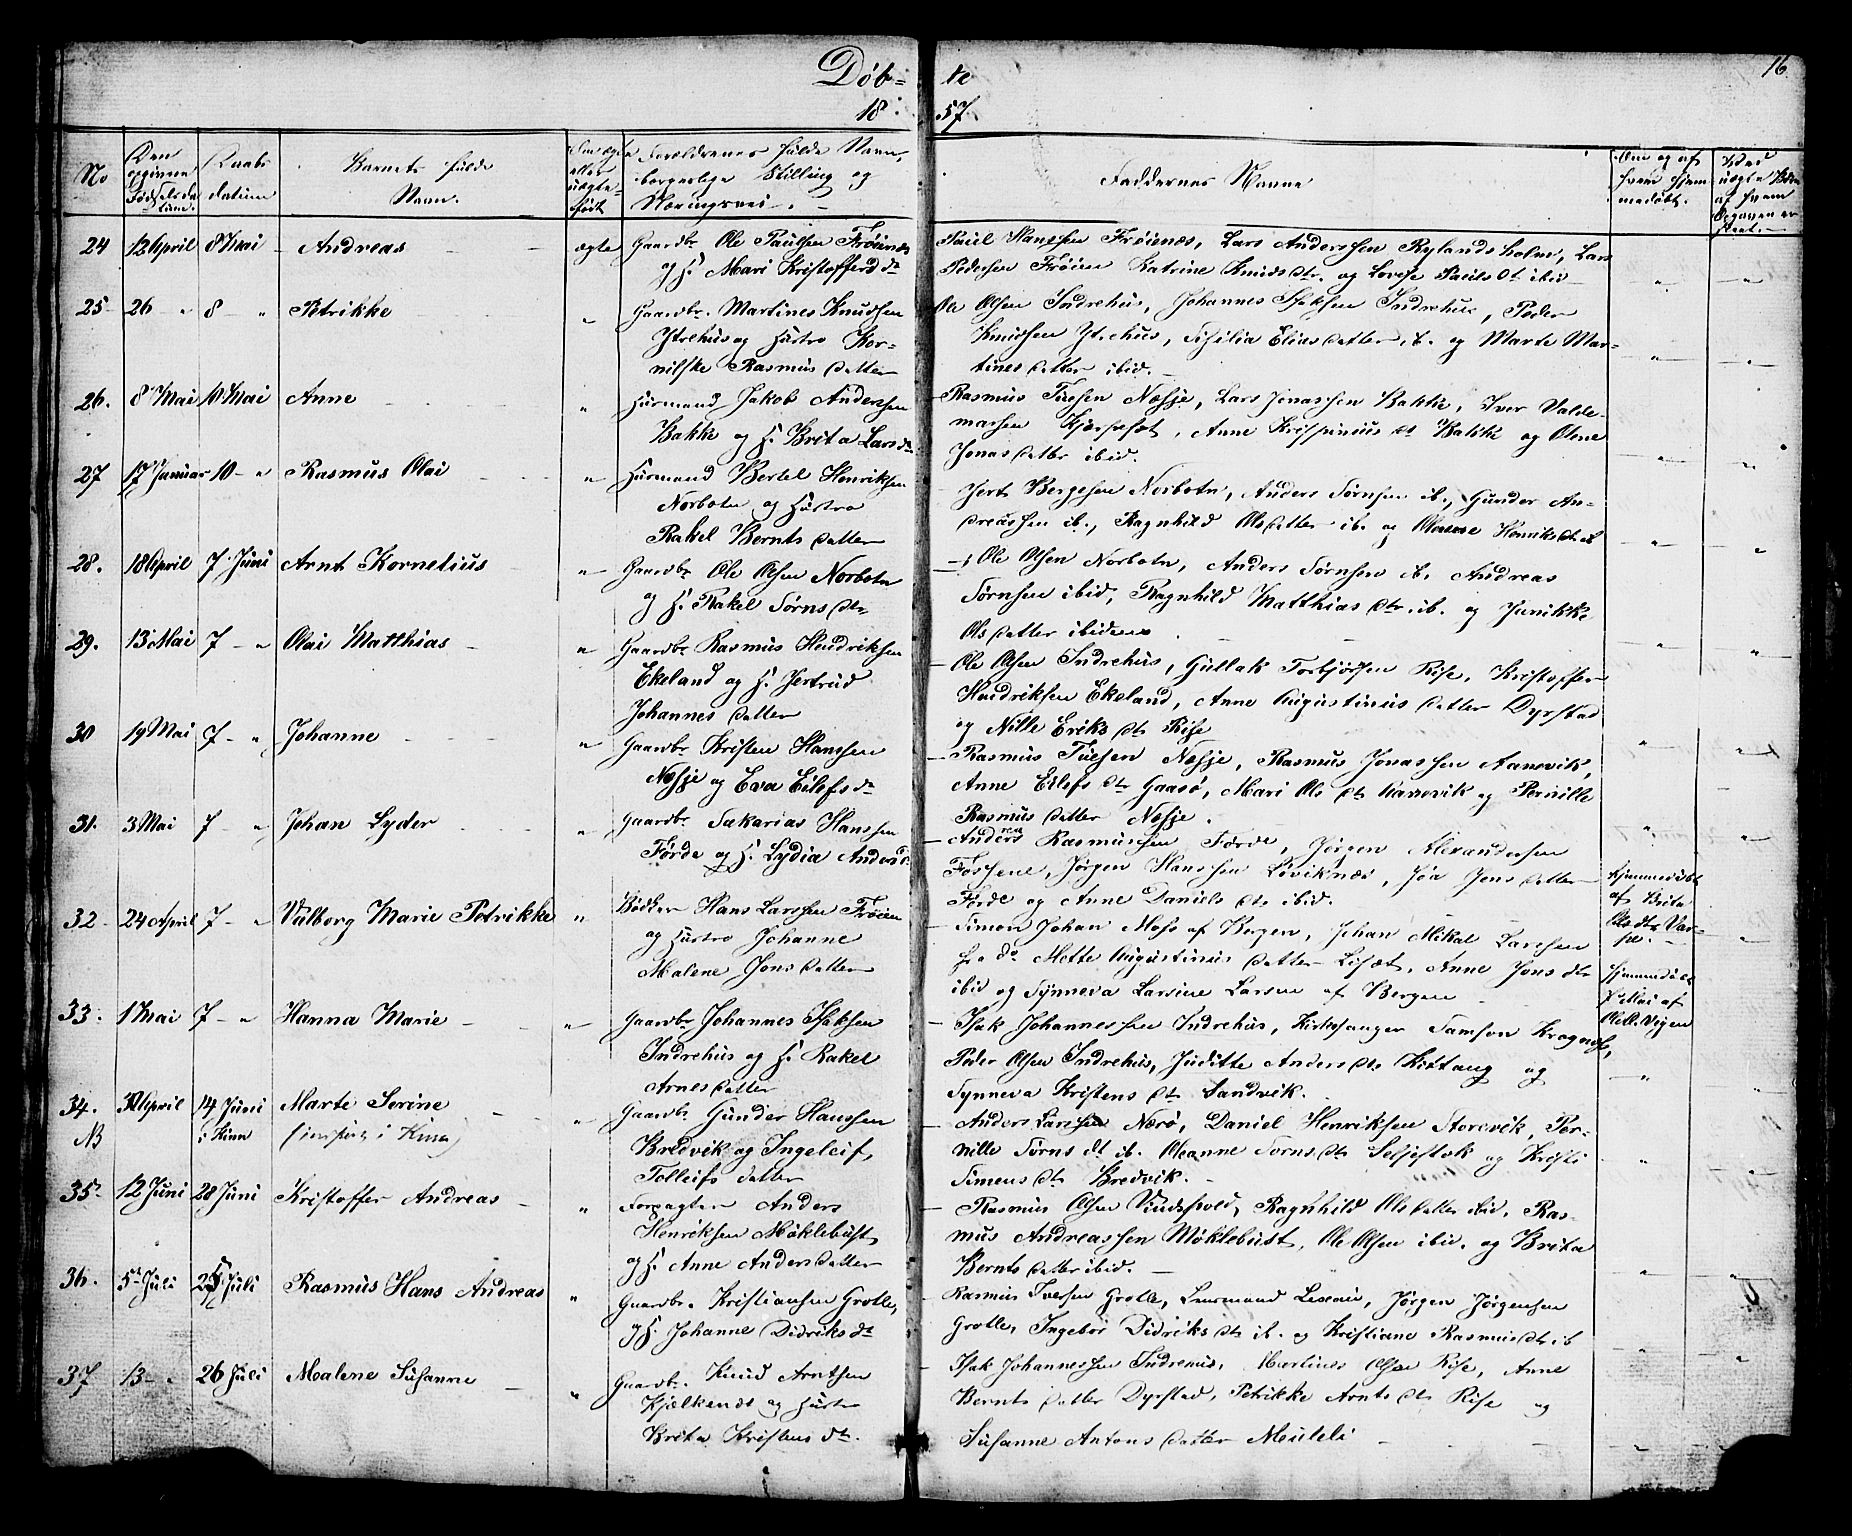 Døb- te
16
18 57.
No
Den opgivne Fødselsdatum.
Daabsdatum
Barnets fulde Navn.
Om ægte eller uægte født
Forældrenes fulde Navn, borgerlige Stilling og Næringsvei.
Faddernes Navne
Om og af hvem hjemmedøbt.
24 12 April 8 Mai Andreas ægte Gaardbr. Ole Paulsen Frøienæs
og H. Mari Kristoffersdtr
Paul Hansen Frøienæs, Lars Anderssen Rylandsholm, Lars
Pedersen Frøien Katrine Knudsdtr. og Lovise Paulsdt ibid
25 26 " 8 " Petrikke " Gaardbr. Martines Knudsen
Ytrehus og Hustro Kor-
nilske Rasmusdatter
Ole Olsen Indrehus, Johannes Isaksen Indrehus, Peder
Knudsen Ytrehus, Sisilia Eliasdatter ib. og Marte Mar-
tinesdatter ibid.
26. 8 Mai 10 Mai Anne " Husmand Jakob Anderssen
Bakke og H. Brita Larsdr
Rasmus Tuesen Næsje, Lars Jonassen Bakke, Iver Valde-
marsen, Anne Krispiniusdt Bakke og Olene
Jonasdatter ibid.
27 17 Januar 10 " Rasmus Olai " Husmand Bertel Henriksen
Norbotn og Hustro
Rakel Berntsdatter
Bergesen Norbotn, Anders Sørnsen ib., Gunder An-
dreassen ib., Ragnhild Olsdatter ib. og
28. 18 April 7 Juni Arnt Kornelius " Gaardbr Ole Olsen Norbotn
og H. Rakel Sørnsdtr
Ole Olsen Norbotn, Anders Sørnsen ib. Andreas
Sørnsen ibid, Ragnhild Matthiasdtr. ib. og Jenikke
Olsdatter ibidem
29. 13 Mai 7 " Olai Matthias " Gaardbr Rasmus Hendriksen
Ekeland og H. Jertrud
Johannesdatter
Ole Olsen Indrehus, Gullak Torbjørsen Rise, Kristoffer
Hendriksen Ekeland, Anne Augustinusdatter Dyrstad
og Nille Eriksdtr Rise
30 19 Mai 7 " Johanne " Gaardbr Kristen Hanssen
Næsje og Eva Eilefsdr
Rasmus Tuesen Næsje, Rasmus Jonassen Aanevik,
Anne Eilefsdtr Gaasø, Mari Olsdtr og Pernille
Rasmusdatter Næsje.
31. 3 Mai 7 " Johan Lyder " Gaardbr Sakarias Hanssen
Førde og H. Lydia Andersd
Rasmussen Førde, Jørgen Alexandersen
Jørgen Hanssen Løviknæs, Jensdatter
Førde og Anne Danielsdtr ibid.
Hjemmedøbt
af Brita
32 24 April 7 " Valborg Marie Petrikke " Bødker Hans Larssen Frøien
og Hustro Johanne
Malene Jonsdatter
Simon Johan Moss af Bergen, Johan Mikal Larssen
fra do Mette Augustinusdatter Liset, Anne Jonsdtr
ibid og Synneva Larsine Larsen af Bergen
33. 1 Mai 7 " Hanna Marie " Gaardbr Johannes Isaksen
Indrehus og H. Rakel
Arnesdatter
Isak Johannessen Indrehus, Kirkesanger Samson
Peder Olsen Indrehus, Juditte Andersdtr og
Synneva Kristensdtr Sandvik.
34. 30 April 14 Juni Marte Serine " Gaardbr Gunder Hanssen
NB i Kinn
Bredvik og Ingeleif
Tolleifsdatter
Anders Larssen Nærø, Daniel Henriksen Storevik, Per-
nille Sørnsdt ib. Oleanne Sørnsdtr og Kristi
Simensdtr Bredvik.
35. 12 Juni 28 Juni Kristoffer Andreas " Forpagter Anders
Henriksen Møklebust
og H. Anne Andersdatter
Rasmus Olsen Vindspold, Ragnhild Olsdatter ibid, Ras-
mus Andreassen Møklebust, Ole Olsen ibid. og Brita
Berntsdatter ibid.
36. 5 Juli 25 Juli Rasmus Hans Andreas " Gaardbr. Kristiansen Grotle,
og H. Johanne Didriksdtr
Rasmus Iversen Grotle, Jørgen Jørgensen
Grotle, Ingebor Didriksdtr ib. og Kristiane Rasmusdtr ib
37 13 " 26 Juli Malene Susanne " Gaardbr. Knud Arntsen
Kjølkenæs og Hustro
Brita Kristensdtr.
Isak Johannessen Indrehus, Martines Olsen Rise, Anne
Berntsdatter Dyrstad, Petrikke Arntsdtr Rise og
Susanne Antonsdatter